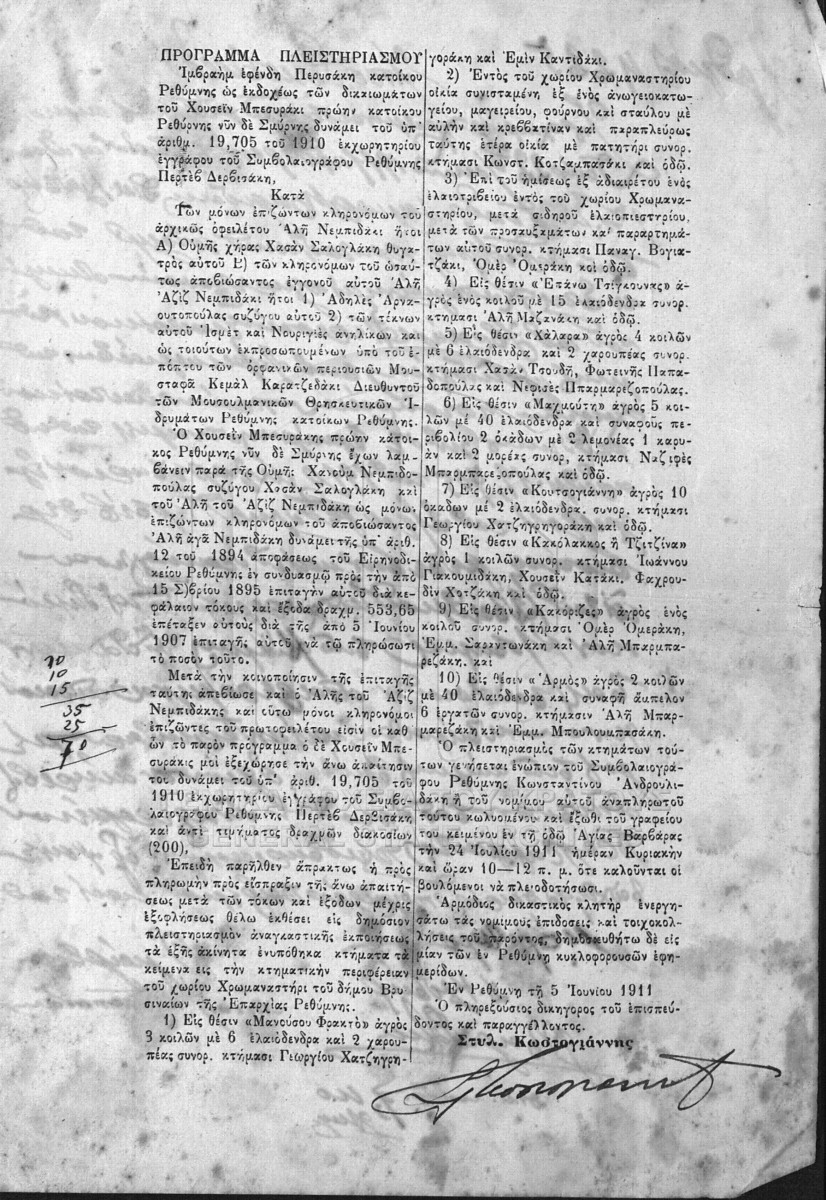 ΠΡΟΓΡΑΜΜΑ ΠΛΕΙΣΤΗΡΙΑΣΜΟΥ
Ἰμβραὴμ ἐφένδη Περυσάκη κατοίκου
Ρεθύμνης ὡς ἐκδοχέως τῶν δικαιωμάτων
τοῦ Χουσεῒν Μπεσυράκι πρώην κατοίκου
Ρεθύρνης νῦν δὲ Σμύρνης δυνάμει τοῦ ὑπ'
ἀριθμ. 19,705 τοῦ 1910 ἐκχωρητηρίου
ἐγγράφου τοῦ Συμβολαιογράφου Ρεθύμνης
Περτὲβ Δερβισάκη,
Κατὰ
Τῶν μόνων ἐπιζώντων κληρονόμων τοῦ
ἀρχικῶς ὀφειλέτου Ἀλῆ Νεμπιδάκι ἤτοι
Α) Οὐμῆς χήρας Χασὰν Σαλογλάκη θυγα-
τρὸς αὐτοῦ Β) τῶν κληρονόμων τοῦ ὡσαύ-
τως ἀποβιώσαντος ἐγγονοῦ αὐτοῦ Ἀλῆ
Ἀζὶζ Νεμπιδάκι ἤτοι 1) Ἀδηλὲς Ἀρνα-
ουτοπούλας συζύγου αὐτοῦ 2) τῶν τέκνων
αὐτοῦ Ἰσμὲτ καὶ Νουριγιὲς ἀνηλίκων καὶ
ὡς τοιούτων ἐκπροσωπουμένων ὑπὸ τοῦ ἐ-
πόπτου τῶν ὀρφανικῶν περιουσιῶν Μου-
σταφᾶ Κεμὰλ Καρατζεδάκι Διευθυντοῦ
τῶν Μουσουλμανικῶν Θρησκευτικῶν Ἱ-
δρυμάτων Ρεθύμνης κατοίκων Ρεθύμνης.
Ὁ Χουσεῒν Μπεσυράκης πρώην κάτοι-
κος Ρεθύμνης νῦν δὲ Σμύρνης ἔχων λαμ-
βάνειν παρὰ τῆς Οὐμῆς Χανοὺμ Νεμπιδο-
πούλας συζύγου Χασὰν Σαλογλάκη καὶ
τοῦ Ἀλῆ τοῦ Ἀζὶζ Νεμπιδάκη ὡς μόνων
ἐπιζώντων κληρονόμων τοῦ ἀποβιώσαντος
Ἀλῆ ἀγᾶ Νεμπιδάκη δυνάμει τῆς ὑπ' ἀριθ.
12 τοῦ 1894 ἀποφάσεως τοῦ Εἰρηνοδι-
κείου Ρεθύμνης ἐν συνδυασμῷ πρὸς τὴν ἀπὸ
15 Σ)βρίου 1895 ἐπιταγὴν αὐτοῦ διὰ κε-
φάλαιον τόκους καὶ ἔξοδα δραχμ. 553,65
ἐπέταξεν αὐτοὺς διὰ τῆς ἀπὸ 5 Ἰουνίου
1907 ἐπιταγῆς αὐτοῦ νὰ τῷ πληρώσωσι
τὸ ποσὸν τοῦτο.
Μετὰ τὴν κοινοποίησιν τῆς ἐπιταγῆς
ταύτης ἀπεβίωσε καὶ ὁ Ἀλῆς τοῦ Ἀζὶζ
Νεμπιδάκης καὶ οὕτω μόνοι κληρονόμοι
ἐπιζῶντες τοῦ πρωτοφειλέτου εἰσὶν οἱ καθ'
ὧν τὸ παρὸν πρόγραμμα ὁ δὲ Χουσεῒν Μπε-
συράκις μοὶ ἐξεχώρησε τὴν ἄνω ἀπαίτησιν
του δυνάμει τοῦ ὑπ' ἀριθ. 19,705 τοῦ
1910 ἐκχωρητηρίου ἐγγράφου τοῦ Συμβο-
λαιογράφου Ρεθύμνης Περτὲβ Δερβισάκη
καὶ ἀντὶ τιμήματος δραχμῶν διακοσίων
(200),
Ἐπειδὴ παρῆλθεν ἄπρακτως ἡ πρὸς
πληρωμὴν πρὸς εἴσπραξιν τῆς ἄνω ἀπαιτή-
σεως μετὰ τῶν τόκων καὶ ἐξόδων μέχρις
ἐξοφλήσεως θέλω ἐκθέσει εἰς δημόσιον
πλειστηριασμὸν ἀναγκαστικῆς ἐκποιήσεως
τὰ ἑξῆς ἀκίνητα ἐνυπόθηκα κτήματα τὰ
κείμενα εἰς τὴν κτηματικὴν περιφέρειαν
τοῦ χωρίου Χρωμαναστήρι τοῦ δήμου Βρυ-
σιναίων τῆς Ἐπαρχίας Ρεθύμνης.
1) Εἰς θέσιν «Μανούσου Φρακτὸ» ἀγρὸς
3 κοιλῶν μὲ 6 ἐλαιόδενδρα καὶ 2 χαρου-
πέας συνορ. κτήμασι Γεωργίου Χατζηγρη-
γοράκη καὶ Ἐμὶν Καντιδάκι.
2) Ἐντὸς τοῦ χωρίου Χρωμαναστηρίου
οἰκία συνισταμένη ἐξ ἑνὸς ἀνωγειοκατω-
γείου, μαγειρείου, φούρνου καὶ σταύλου μὲ
αὐλὴν καὶ κρεββατίναν καὶ παραπλεύρως
ταύτης ἑτέρα οἰκία μὲ πατητήρι συνορ.
κτήμασι Κωνστ. Κοτζαμπασάκι καὶ ὁδῷ.
3) Ἐπὶ τοῦ ἡμίσεως ἐξ ἀδιαιρέτου ἑνὸς
ἐλαιοτριβείου ἐντὸς τοῦ χωρίου Χρωμανα-
στηρίου, μετὰ σιδηροῦ ἐλαιοπιεστηρίου,
μετὰ τῶν προσαυξαμάτων καὶ παραρτημά-
των αὐτοῦ συνορ. κτήμασι Παναγ. Βογια-
τζάκι, Ὀμὲρ Ὀμεράκη καὶ ὁδῷ.
4) Εἰς θέσιν «Ἐπάνω Τσίγκουνας» ἀ-
γρὸς ἑνὸς κοιλοῦ μὲ 15 ἐλαιόδενδρα συνορ.
κτήμασι Ἀλῆ Μαζανάκη καὶ ὁδῷ.
5) Εἰς θέσιν «Χάλαρα» ἀγρὸς 4 κοιλῶν
μὲ 6 ἐλαιόδενδρα καὶ 2 χαρουπέας συνορ.
κτήμασι Χασὰν Τσουδῆ, Φωτεινῆς Παπα-
δοπούλας καὶ Νεφισὲς Μπαρμαρεζοπούλας.
6) Εἰς θέσιν «Μαχμούτη» ἀγρὸς 5 κοι-
λῶν μὲ 40 ἐλαιόδενδρα καὶ συναφοῦς πε-
ριβολίου 2 ὀκάδων μὲ 2 λεμονέας 1 καρυ-
ὰν καὶ 2 μορέας συνορ, κτήμασι Ναζιφὲς
Μπαρμπαρεζοπούλας καὶ ὁδῷ.
7) Εἰς θέσιν «Κουτσογιάννη» ἀγρὸς 10
ὀκάδων μὲ 2 ἐλαιόδενδρα. συνορ. κτήμασι
Γεωργίου Χατζηγρηγοράκη καὶ ὁδῷ.
8) Εἰς θέσιν «Κακόλακκος ἢ Τζιτζίνα»
ἀγρὸς 1 κοιλῶν συνορ. κτήμασι Ἰωάννου
Γιακουμιδάκη, Χουσεῒν Κατάκι. Φαχρου-
δὶν Χοτζάκη καὶ ὁδῷ.
9) Εἰς θέσιν «Κακόριζες» ἀγρὸς ἑνὸς
κοιλοῦ συνορ. κτήμασι Ὀμὲρ Ὀμεράκη,
Ἐμμ. Σαραντωνάκη καὶ Ἀλῆ Μπαρμπα-
ρεζάκη. καὶ
10) Εἰς θέσιν «Ἁρμὸς» ἀγρὸς 2 κοιλῶν
μὲ 40 ἐλαιόδενδρα καὶ συναφῆ ἄμπελον
6 ἐργατῶν συνορ. κτήμασιν Ἀλῆ Μπαρ-
μαρεζάκη καὶ Ἐμμ. Μπουλουμπασάκη.
Ὁ πλειστηριασμὸς τῶν κτημάτων τού-
των γενήσεται ἐνώπιον τοῦ Συμβολαιογρά-
φου Ρεθύμνης Κωνσταντίνου Ἀνδρουλι-
δάκη ἢ τοῦ νομίμου αὐτοῦ ἀναπληρωτοῦ
τούτου κωλυομένου καὶ ἔξωθι τοῦ γραφείου
του κειμένου ἐν τῇ ὁδῷ Ἁγίας Βαρβάρας
τὴν 24 Ἰουλίου 1911 ἡμέραν Κυριακὴν
καὶ ὥραν 10—12 π. μ. ὅτε καλοῦνται οἱ
βουλόμενοι νὰ πλειοδοτήσωσι.
Ἁρμόδιος δικαστικὸς κλητὴρ ἐνεργη-
σάτω τὰς νομίμους ἐπιδόσεις καὶ τοιχοκολ-
λήσεις τοῦ παρόντος, δημοσιευθήτω δὲ εἰς
μίαν τῶν ἐν Ρεθύμνῃ κυκλοφορουσῶν ἐφη-
μερίδων.
Ἐν Ρεθύμνῃ τῇ 5 Ἰουνίου 1911
Ὁ πληρεξούσιος δικηγόρος τοῦ ἐπισπεύ-
δοντος καὶ παραγγέλλοντος.
Στυλ. Κωστογιάννης
10
15
35
25
70